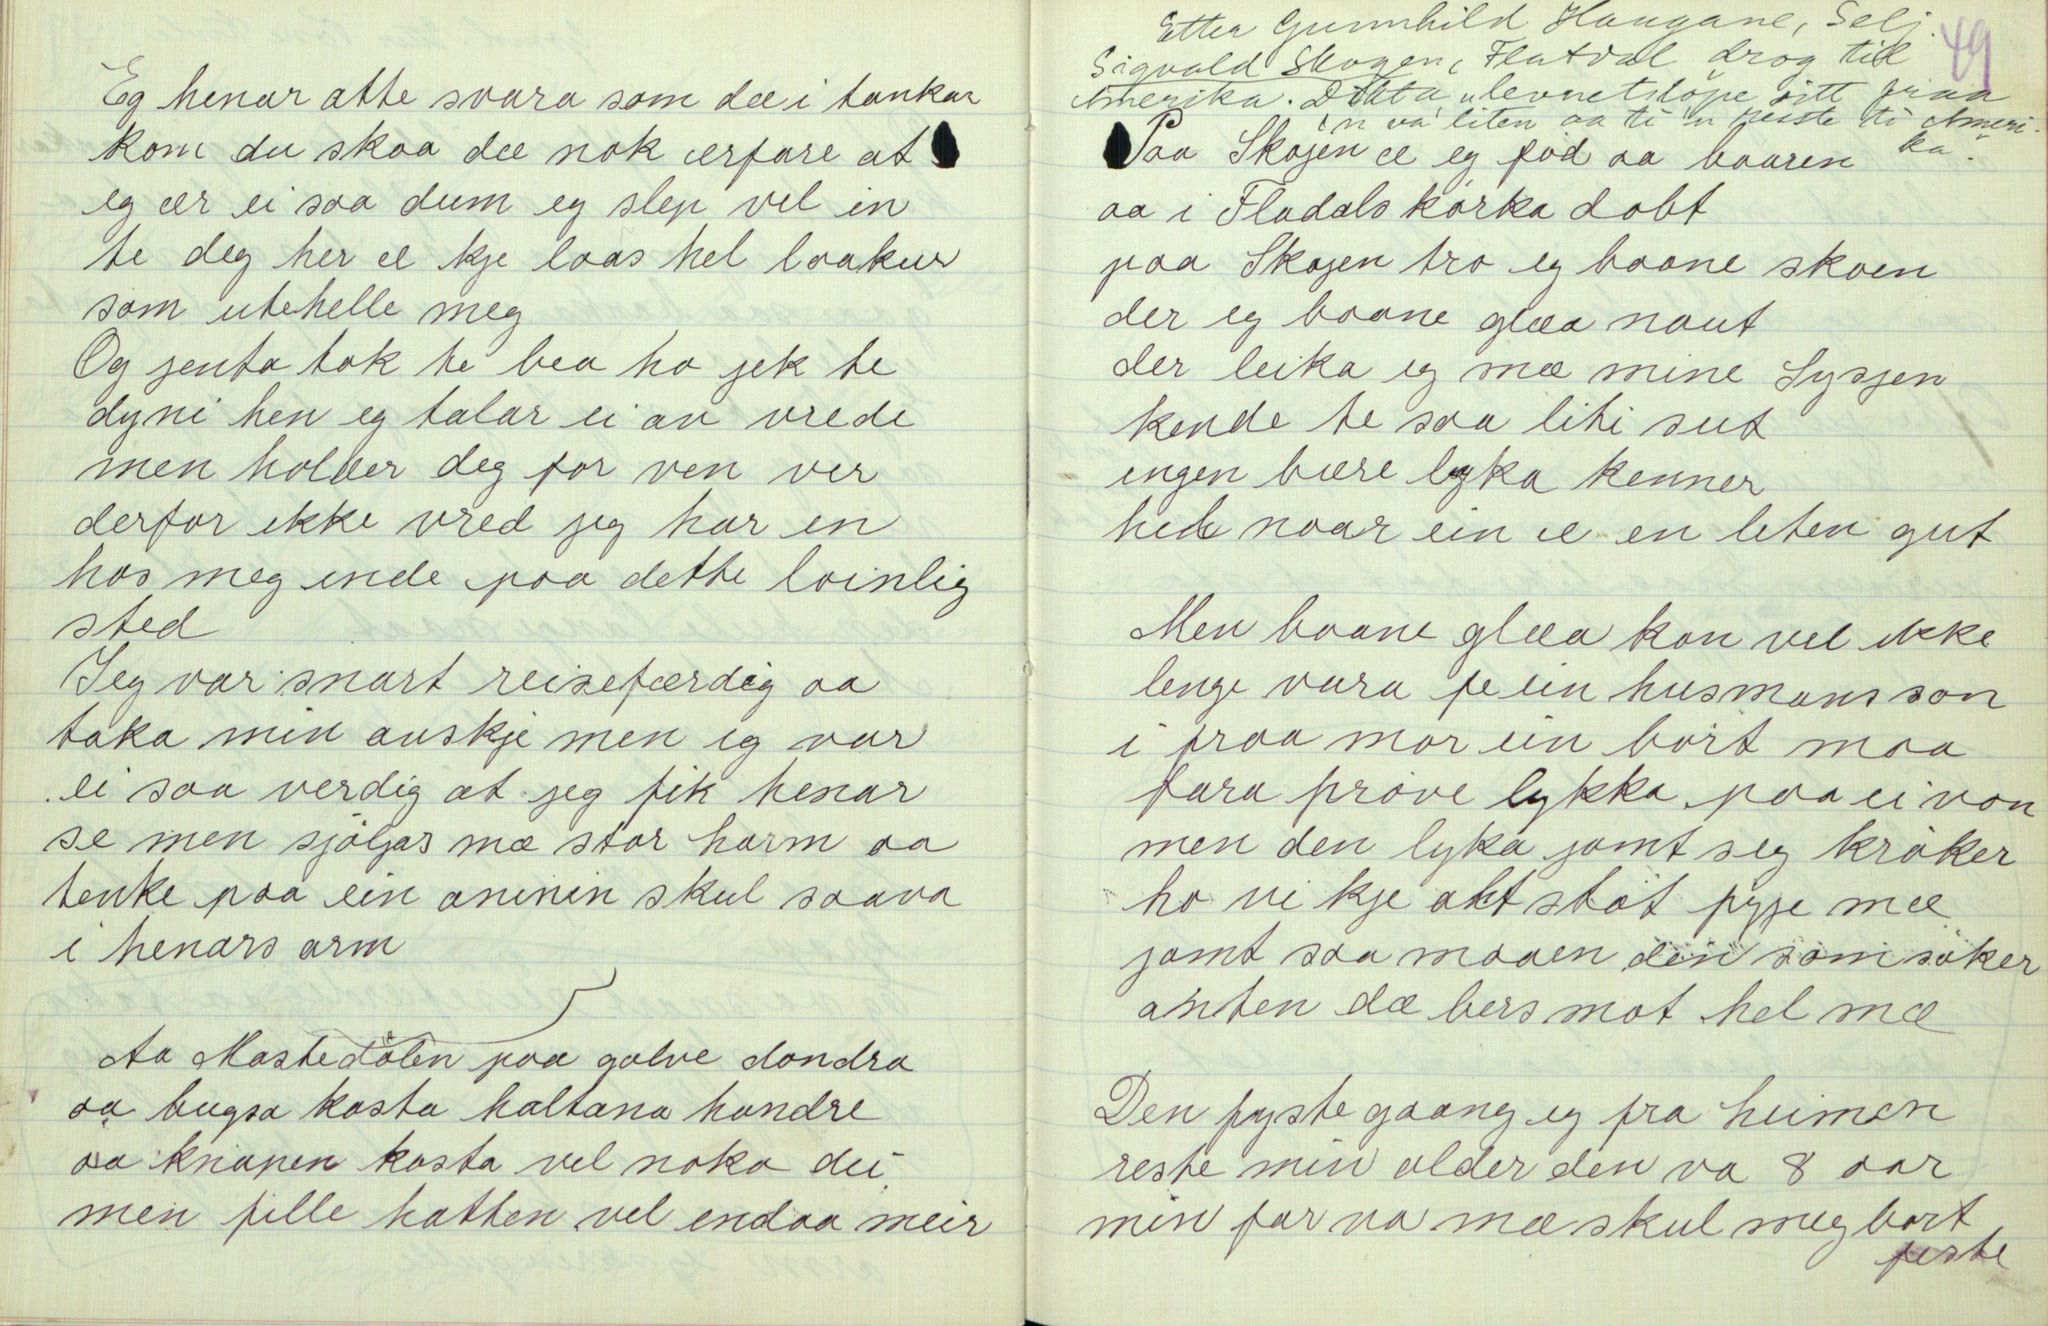 Eg henar atte svara som dæ i tankar
kom du skaa dæ nok ærfare at
eg ær ei saa dum eg slep vel in
te deg her æ kje laas hel laakur
som utehelle meg
Og jenta tok te bea ho jek te
dyni hen eg talar ei av vrede
men holder deg for ven ver
derfor ikke vred jeg har en
hos meg ende paa dette loinlig
sted
Jeg var snart reisefærdig aa
taka min auskje men eg var
ei saa verdig at jeg fik henar
se men sjölgas mæ stor harm aa
tenke paa ein aninin skul saava
i henars arm
Aa Mastedölen paa golve dondra
aa bugsa kasta haltana hondre
aa knapen kosta vel noka dei
men fille hatten vel endaa meir
Etter Gunnhild Haugane, Selj.
49
Sigvald Skogen, Flatdal drog til
Amerika. Dikta "levnetsløpe sitt fraa
'n va liten aa ti 'n reiste ti Ameri-
ka."
Paa Skojen æ eg föd aa baaren
aa i Fladals körka döbt
paa Skojen tro eg baane skoen
der eg baane glæa nout
der leika eg mæ mine Sysjen
kende te saa liti sut
ingen bære lyka kenner
held naar ein æ en leten gut
Men baane glæa kan vel ikke
lenge vara fe ein husmans son
i fraa mor ein bort maa
fara pröve lykka paa ei von
men den lyka jamt seg kröker
ho vi kje akt stöt fyje mæ
jamt saa maaen den som söker
anten dæ bers mot hel mæ
Den fyste gaang eg fra heimen
reste min alder den va 8 aar
min far va mæ skul meg bort
feste